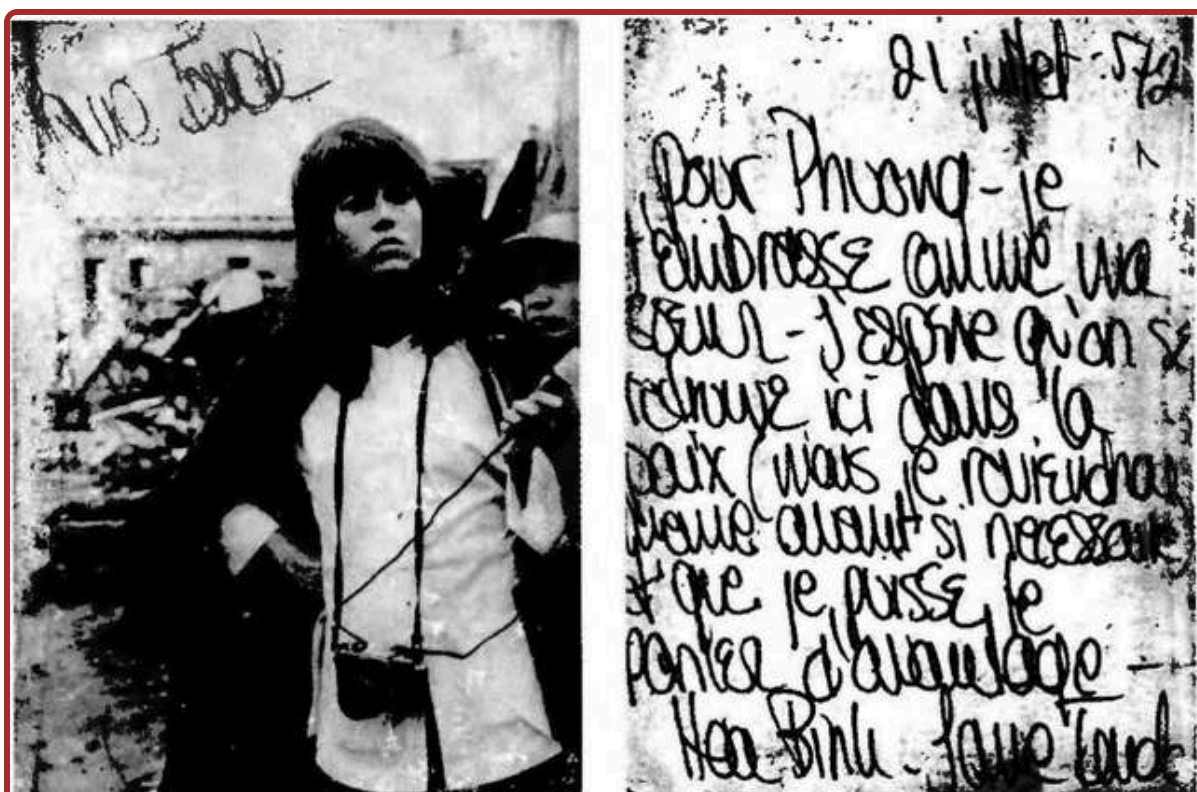 Jane Fonda
21 juillet 572
Pour Phuong - je
t'embrasse comme une
soeur - j'espère qu'on se
retrouve ici dans la
paix (mais je reviendrai
même avant si necessaire
et que je puisse te
parler d'avantage -
Hoa Binh - Jane Fonda